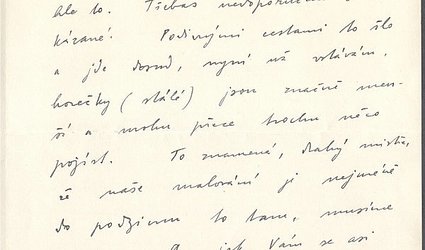 Ale to. Třebas nedopo
kázané! Podivnými cestami to šlo
a jde dosud, nyní už vstávám,
horečky (stálé) jsou značně men-
ší a mohu přece trochu něco
pojíst. To znamená, drahý mistře,
že naše malování je nejméně
do podzimu to tam, musíme
a jak Vám se asi